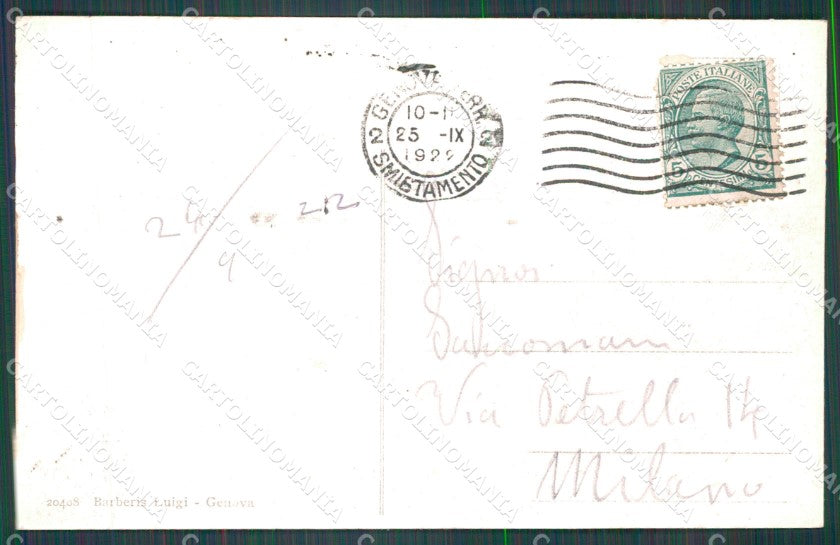 GENOVA FERR.
10-11
2 25 -IX 2
1922
SMISTAMENTO
POSTE ITALIANE
5 5
24/9
Signor
Via Petrella 14
Milano
20408 Barberis Luigi - Genova
CARTOLINOMANIA